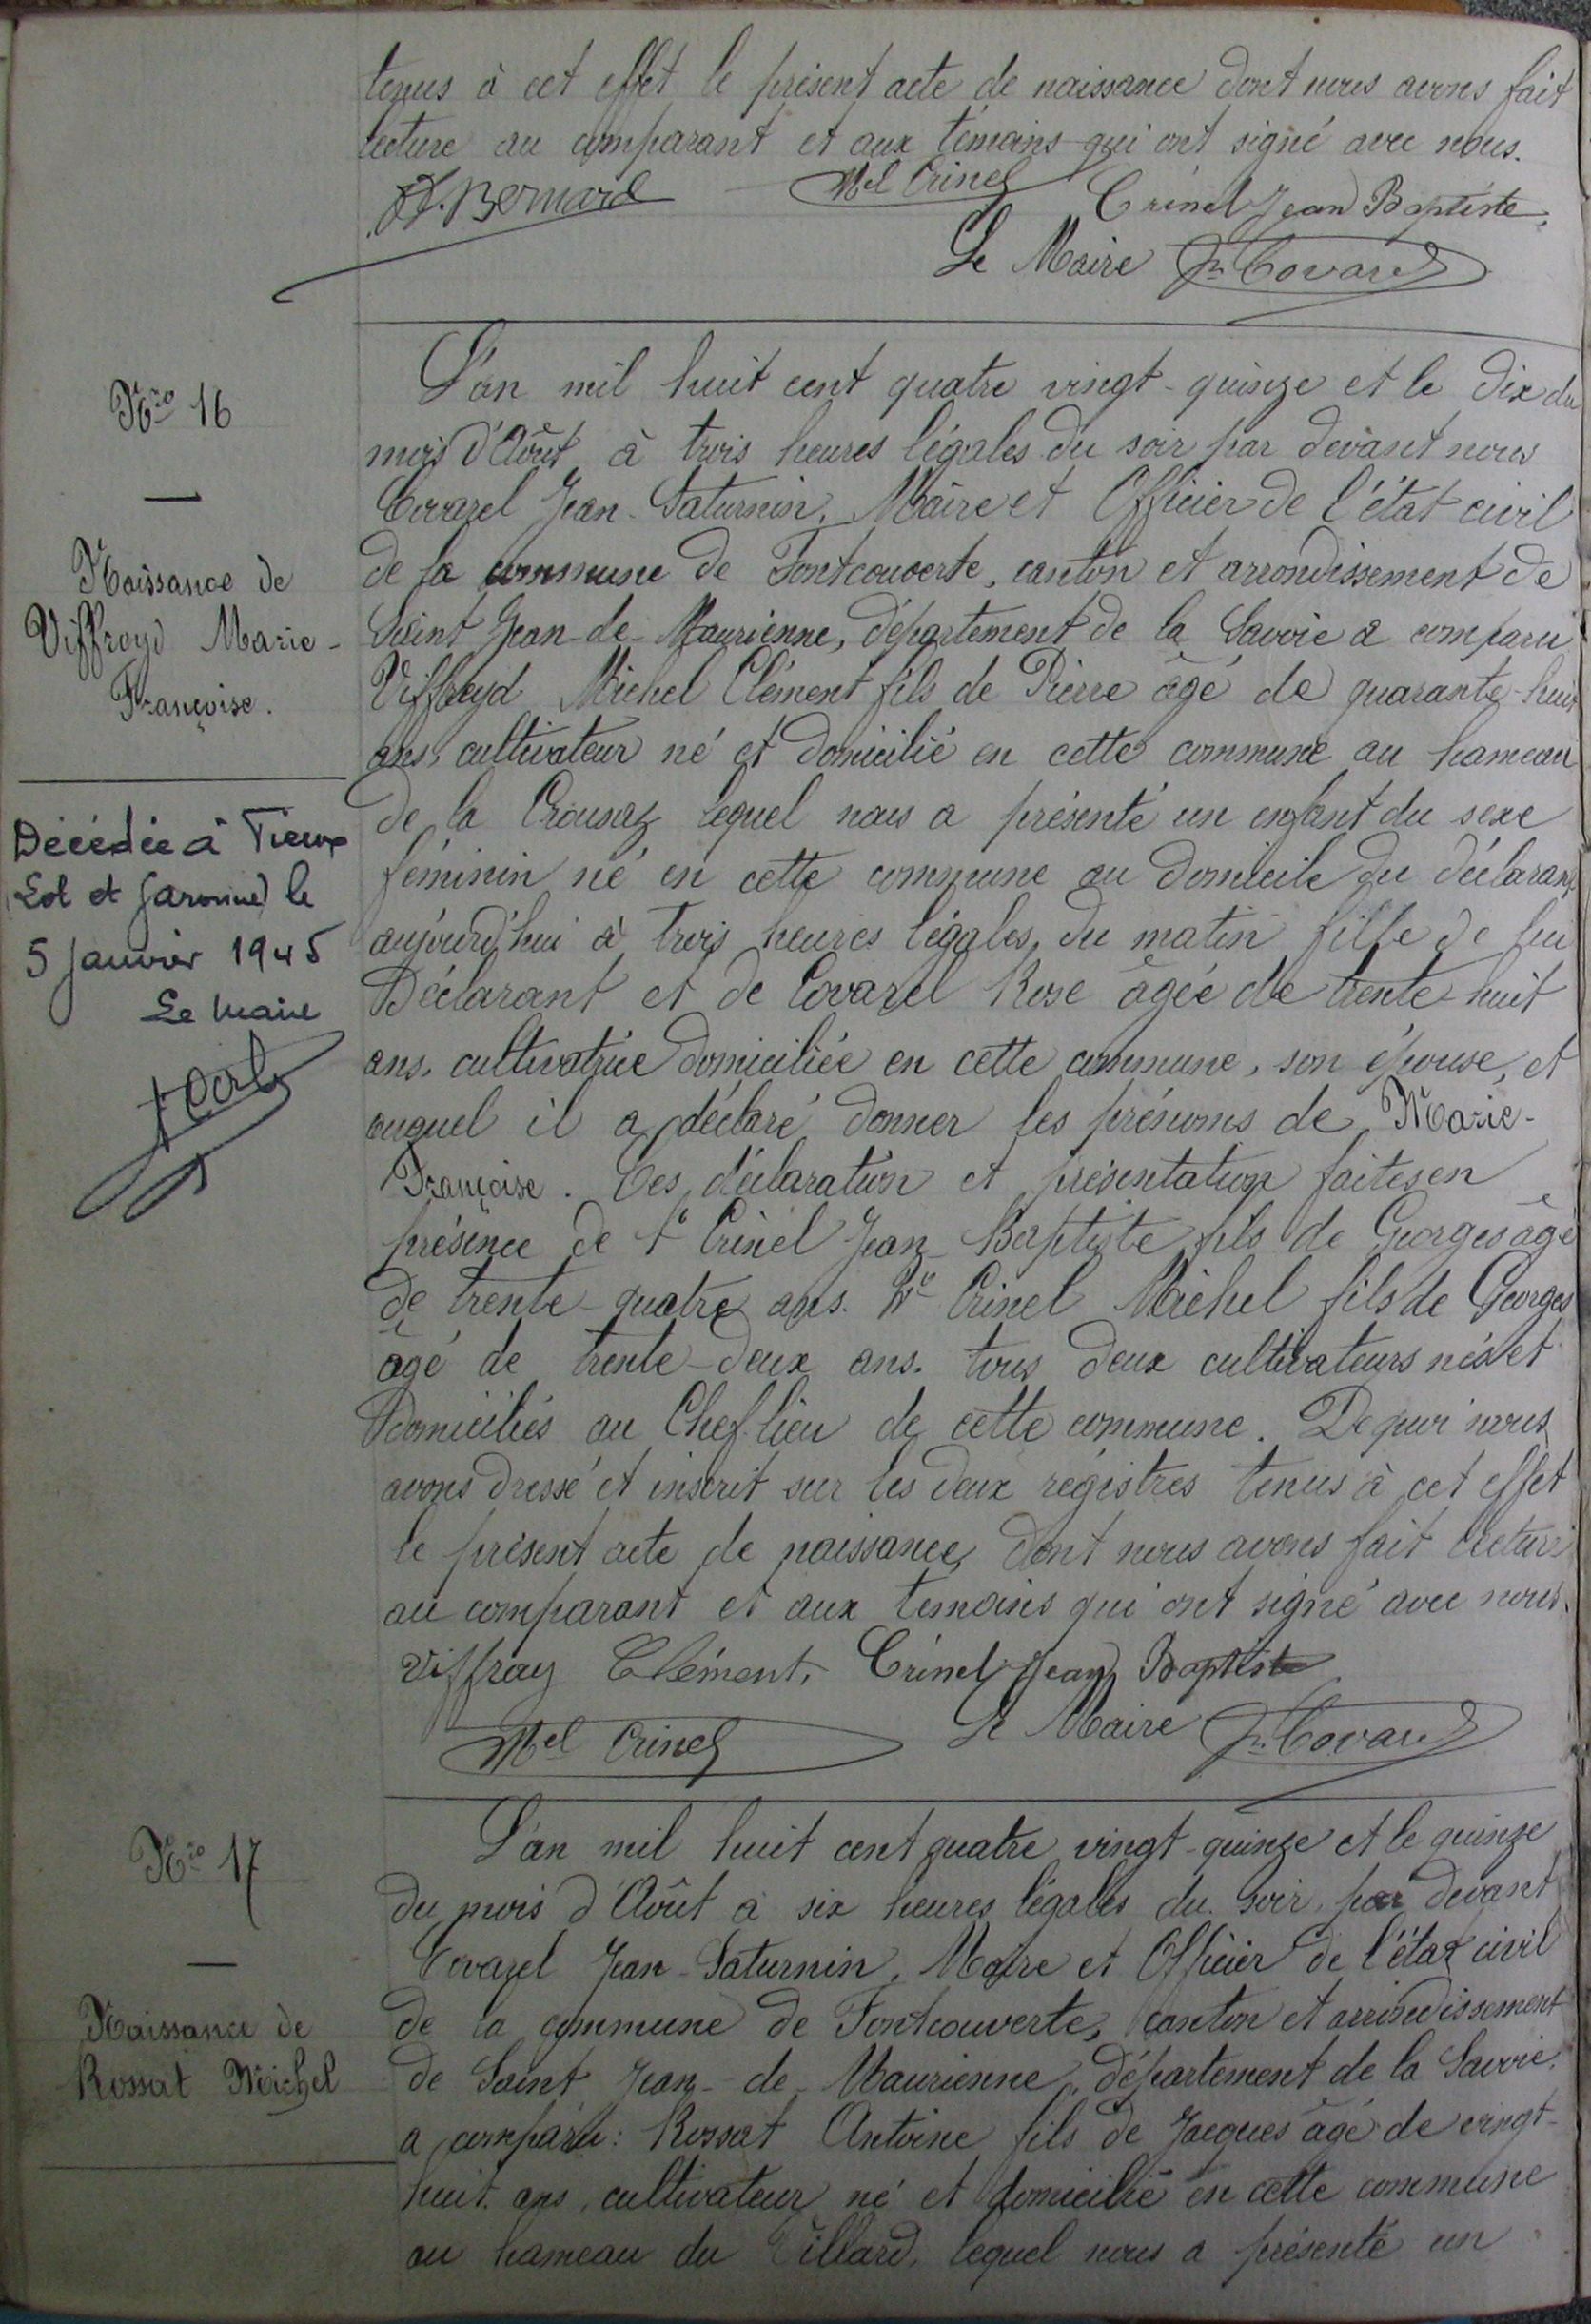 tenus à cet effet le présent acte de naissance dont nous avons fait
lecture au comparant et aux témoins qui ont signé avec nous.
Bernard Mel Crinel Crinel Jean Baptiste
Le Maire Jn Covarel
Nro 16
Naissance de
Viffroyd Marie-
Françoise.
Décédée à
(Lot et Garonne) le
5 Janvier 1945
Le Maire
L'an mil huit cent quatre vingt-quinze et le dix du
mois d'Août à trois heures légales du soir par devant nous
Covarel Jean-Saturnin, Maire et Officier de l'état civil
de la commune de Fontcouverte, canton et arrondissement de
Saint Jean-de-Maurienne, département de la Savoie a comparu
Viffroyd Michel Clément fils de Pierre âgé de quarante-huit
ans, cultivateur né et domicilié en cette commune au hameau
de la Crousaz lequel nous a présenté un enfant du sexe
féminin né en cette commune au domicile du déclarant
aujourd'hui à trois heures légales du matin fille de lui
Déclarant et de Covarel Rose âgée de trente-huit
ans, cultivatrice domiciliée en cette commune, son épouse, et
auquel il a déclaré donner les prénoms de Marie-
Françoise. Ces déclaration et présentation faites en
présence de 1° Crinel Jean-Baptiste fils de Georges âgé
de trente-quatre ans. 2° Crinel Michel fils de Georges
âgé de trente-deux ans. tous deux cultivateurs nés et
domiciliés au Chef-lieu de cette commune. De quoi nous
avons dressé et inscrit sur les deux régistres tenus à cet effet
le présent acte de naissance, dont nous avons fait lecture
au comparant et aux témoins qui ont signé avec nous.
Viffray Clément, Crinel Jean Baptiste
Mel Crinel Le Maire Jn Covarel
Nro 17
Naissance de
Rossat Michel
L'an mil huit cent quatre vingt-quinze et le quinze
du mois d'Août à six heures légales du soir, par devant
Covarel Jean-Saturnin, Maire et Officier de l'état civil
de la commune de Fontcouverte, canton et arrondissement
de Saint Jean-de-Maurienne, département de la Savoie,
a comparu: Rossat Antoine fils de Jacques âgé de vingt-
huit ans, cultivateur né et domicilié en cette commune
au hameau du Villard, lequel nous a présenté un